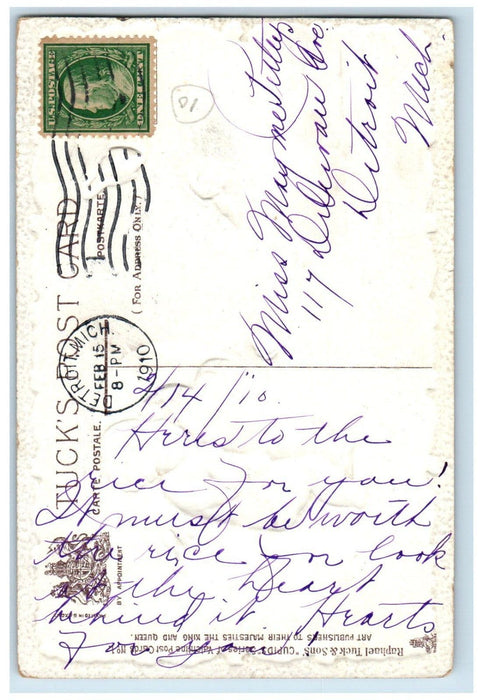 U.S. POSTAGE
ONE CENT
DETROIT, MICH.
FEB 15
8-PM
1910
TUCK'S POST CARD
CARTE POSTALE.
POSTKARTE
(FOR ADDRESS ONLY.)
BY APPOINTMENT
01
Miss Mayme Tilley
117 Ave.
Detroit
Mich.
2/14/10.
Heres to the
price for you!
It must be worth
the rice you look
at the heart
behind it. Hearts
for you
Raphael Tuck & Sons' "CUPID'S" Series of Valentine Post Cards No.
ART PUBLISHERS TO THEIR MAJESTIES THE KING AND QUEEN.